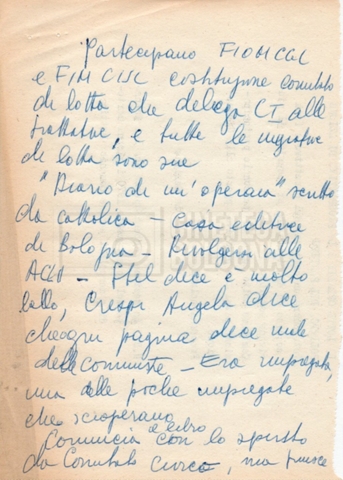 Partecipano FIOM CGIL
e FIM CISL costituzione comitato
di lotta che delega CI alle
trattative, e tutte le iniziative
di lotta sono sue
"Diario di un'operaia" scritto
da cattolica - Casa editrice
di Bologna - Rivolgersi alle
ACLI - Stel dice è molto
bello, Crespi Angela dice
che ogni pagina dice male
delle comuniste - Era impiegata,
una delle poche impiegate
che scioperano
Comincia il libro con lo
da Comitato, ma finisce